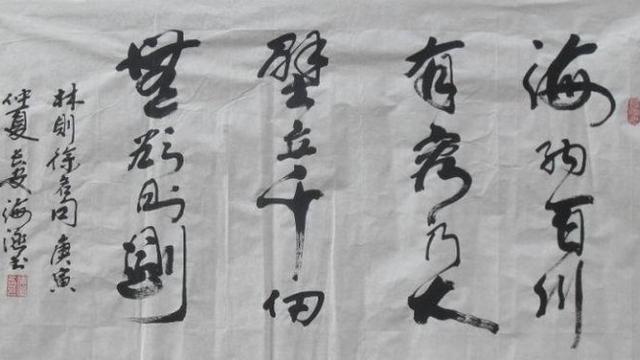 海納百川
有容乃大
壁立千仞
無欲則剛
林則徐名句 庚寅
仲夏 長安 海涵書